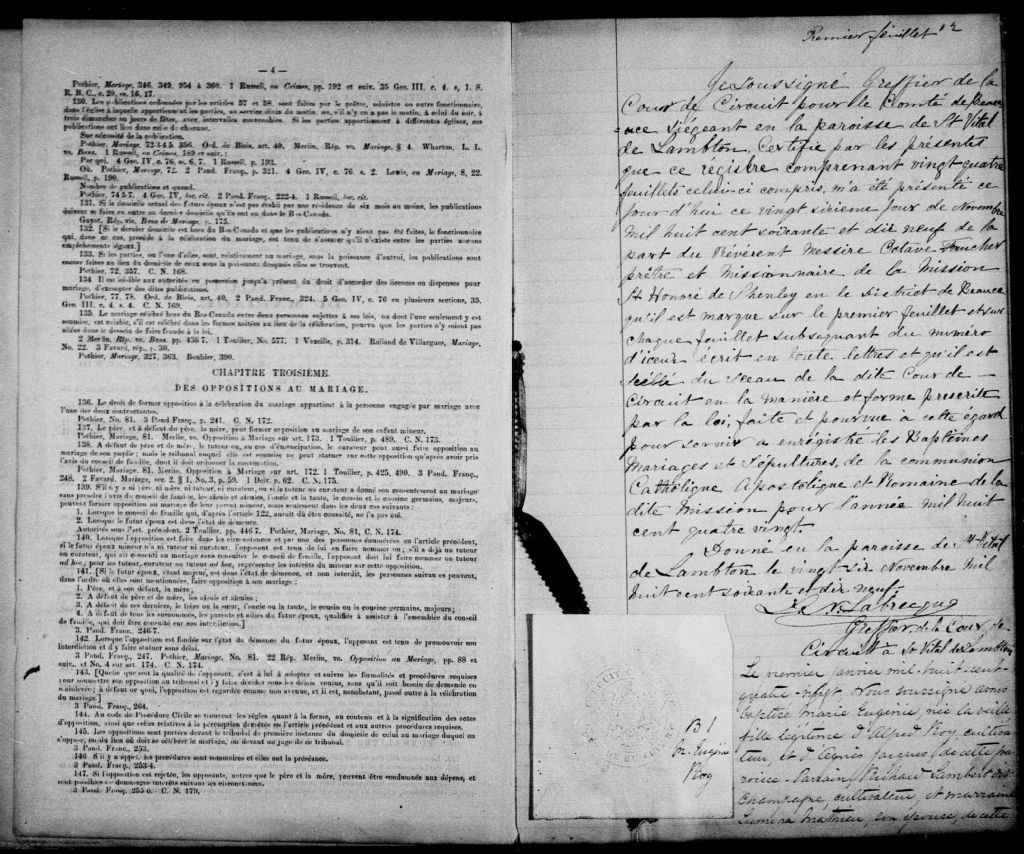 — 4 —
Pothier, Mariage, 346, 349, 354 à 360. 1 Russell, on Crimes, pp. 192 et suiv. 35 Geo. III, c. 4, s. 1. S.
R. B. C., c. 20, ss. 16, 17.
130. Les publications ordonnées par les articles 57 et 58, sont faites par le prêtre, ministre ou autre fonctionnaire,
dans l'église à laquelle appartiennent les parties, au service divin du matin, ou, s'il n'y en a pas le matin, à celui du soir, à
trois dimanches ou jours de fêtes, avec intervalles convenables. Si les parties appartiennent à différentes églises, ces
publications ont lieu dans celle de chacune.
Sur nécessité de la publication.
Pothier, Mariage, 72-3-4-5 356. Ord. de Blois, art. 40. Merlin, Rép. vo. Mariage, § 4. Wharton, L. L.
vo. Bans. 1 Russell, on Crimes, 189 et suiv.
Par qui. 4 Geo. IV, c. 76, ss. 6, 7. 1 Russell, p. 193.
Où. Pothier, Mariage, 72. 2 Pand. Franç., p. 321. 4 Geo. IV, c. 76, s. 2. Lewis, on Mariage, 8, 22.
Russell, p. 190.
Nombre de publications et quand.
Pothier, 74-5-7. 4 Geo. IV, loc. cit. 2 Pand. Franç., 222-4. 1 Russell, loc. cit.
131. Si le domicile actuel des futurs époux n'est pas établi par une résidence de six mois au moins, les publications
doivent se faire en outre au dernier domicile qu'ils ont eu dans le Bas-Canada.
Guyot, Rép. vis. Bans de Mariage, p. 175.
132. [Si le dernier domicile est hors du Bas-Canada et que les publications n'y aient pas été faites, le fonctionnaire
qui, dans ce cas, procède à la célébration du mariage, est tenu de s'assurer qu'il n'existe entre les parties aucuns
empêchements légaux.]
133. Si les parties, ou l'une d'elles, sont, relativement au mariage, sous la puissance d'autrui, les publications sont
encore faites au lieu du domicile de ceux sous la puissance desquels elles se trouvent.
Pothier, 72, 357. C. N. 168.
134. Il est loisible aux autorités en possession jusqu'à présent du droit d'accorder des licences ou dispenses pour
mariage, d'exempter des dites publications.
Pothier, 77, 78. Ord. de Blois, art. 40. 2 Pand. Franç., 324. 5 Geo. IV, c. 76 en plusieurs sections, 35.
Geo. III, c. 4, s. 4. C. N. 169.
135. Le mariage célébré hors du Bas-Canada entre deux personnes sujettes à ses lois, ou dont l'une seulement y est
soumise, est valable, s'il est célébré dans les formes usitées au lieu de la célébration, pourvu que les parties n'y soient pas
allées dans le dessein de faire fraude à la loi.
2 Merlin, Rép. vo. Bans, pp. 436-7. 1 Toullier, No. 577. 1 Vazeille, p. 314. Rolland de Villargues, Mariage,
No. 22. 3 Favard, rép., p. 30.
Pothier, Mariage, 327, 363. Bouhier, 390.
CHAPITRE TROISIÈME.
DES OPPOSITIONS AU MARIAGE.
136. Le droit de former opposition à la célébration du mariage appartient à la personne engagée par mariage avec
l'une des deux contractantes.
Pothier, No. 81. 3 Pand Franç., p. 241. C. N. 172.
137. Le père, et à défaut du père, la mère, peut former opposition au mariage de son enfant mineur.
Pothier, Mariage, 81. Merlin, vo. Opposition à Mariage sur art. 173. 1 Toullier, p. 489. C. N. 173.
138. A défaut de père et de mère, le tuteur ou, en cas d'émancipation, le curateur peut aussi faire opposition au
mariage de son pupille; mais le tribunal auquel elle est soumise ne peut statuer sur cette opposition qu'après avoir pris
l'avis du conseil de famille, dont il doit ordonner la convocation.
Pothier, Mariage, 81. Merlin, Opposition à Mariage sur art. 172. 1 Toullier, p. 425, 490. 3 Pand. Franç.,
248. 2 Favard, Mariage, sec. 2, § 1, No. 3, p. 59. 1 Delv. p. 62. C. N. 175.
139. S'il n'y a ni père, ni mère, ni tuteur, ni curateur, ou si le tuteur ou curateur a donné son consentement au mariage
sans prendre l'avis du conseil de famille, les aïeuls et aïeules, l'oncle et la tante, le cousin et la cousine germains, majeurs,
peuvent former opposition au mariage de leur parent mineur, mais seulement dans les deux cas suivants:
1. Lorsque le conseil de famille qui, d'après l'article 122, aurait dû être consulté, ne l'a pas été.
2. Lorsque le futur époux est dans l'état de démence.
Autorités sous l'art. précédent. 2 Toullier, pp. 446-7. Pothier, Mariage, No. 81, C. N. 174.
140. Lorsque l'opposition est faite dans les circonstances et par une des personnes énumérées en l'article précédent,
si le futur époux mineur n'a ni tuteur ni curateur, l'opposant est tenu de lui en faire nommer un; s'il a déjà un tuteur
ou curateur, qui ait consenti au mariage sans consulter le conseil de famille, l'opposant doit lui faire nommer un tuteur
ad hoc; pour les tuteur, curateur ou tuteur ad hoc, représenter les intérêts du mineur sur cette opposition.
141. [Si le futur époux, étant majeur, est dans l'état de démence, et non interdit, les personnes suivantes peuvent,
dans l'ordre où elles sont mentionnées, faire opposition à son mariage:
1. Père, et à son défaut, la mère;
2. A défaut de père et de mère, les aïeuls et aïeules;
3. A défaut de ces derniers, le frère ou la sœur, l'oncle ou la tante, le cousin ou la cousine germains, majeurs;
4. A défaut de tous les susnommés, les parents et alliés du futur époux, qualifiés à assister à l'assemblée du conseil
de famille, qui doit être consulté sur son interdiction.]
3. Pand. Franç., 246-7.
142. Lorsque l'opposition est fondée sur l'état de démence du futur époux, l'opposant est tenu de promouvoir son
interdiction et d'y faire statuer sans délai.
3 Pand. Franç., 247. Pothier, Mariage, No. 81. 22 Rép. Merlin, vo. Opposition au Mariage, pp. 88 et
suiv. et No. 4 sur art. 174. C. N. 174.
143. [Quelle que soit la qualité de l'opposant, c'est à lui à adopter et suivre les formalités et procédures requises
pour soumettre son opposition au tribunal et l'y faire décider sous les délais voulus, sans qu'il soit besoin de demande en
mainlevée; à défaut de quoi, l'opposition est regardée comme non avenue, et il est, nonobstant, passé outre à la célébration
du mariage.]
3 Pand. Franç., 264.
144. Au Code de Procédure Civile se trouvent les règles quant à la forme, au contenu et à la signification des actes
d'opposition, ainsi que celles relatives à la péremption décrétée en l'article précédent et aux autres procédures requises.
145. Les oppositions sont portées devant le tribunal de première instance du domicile de celui au mariage duquel on
s'oppose, ou du lieu où doit se célébrer le mariage, ou devant un juge de ce tribunal.
3 Pand. Franç., 253.
146. S'il y a appel, les procédures sont sommaires et elles ont la préséance.
3 Pand. Franç., 253-4.
147. Si l'opposition est rejetée, les opposants, autres que le père et la mère, peuvent être condamnés aux dépens, et
sont passibles de dommages-intérêts suivant les circonstances.
3 Pand. Franç., 255-6. C. N. 179.
Premier feuillet
Je Soussigné Greffier de la
Cour de Circuit pour le Comté de Beau-
-ce Siégeant en la paroisse de St Vital
de Lambton, Certifie par les présentes
que ce régistre comprenant vingt quatre
feuillets celuici compris, m'a été présenté ce
Jour d'hui ce vingt sixieme Jour de Novembre
Mil huit cent soixante et dix neuf de la
part du Révérent Messire Octave Faucher
prêtre et missionnaire de la mission
St Honoré de Shenley en le District de Beauce
qu'il est marque sur le premier feuillet et sur
Chaque feuillet subsequant du numéro
d'iceux écrit en toute lettres et qu'il est
Scéllé du Sceau de la dite Cour de —
Circuit en la manière et forme prescrite
par la loi, faite et pourvue à cette égard
pour servir a enrégistré les Baptêmes
Mariages et Sépultures, de la communion
Catholique Apostolique et Romaine de la
dite Mission pour l'année mil huit
cent quatre vingt
Donné en la paroisse de St Vital
de Lambton le vingt six Novembre Mil
huit cent soixante et dix neuf
Labrecque
Greffier de la Cour de
Circuit St Vital de Lambton
Le premier janvier mil huit cent
quatre vingt Nous soussigné avons
baptisé Marie Eugénie née la veille
fille légitime d'Alfred Roy, cultiva-
teur, et d'Agnès Jacques de cette pa-
roisse. Parrain, Richard Lambert dit
Champagne, cultivateur, et marraine
Mathieu, son épouse, de cette
B 1
M. Eugénie
Roy